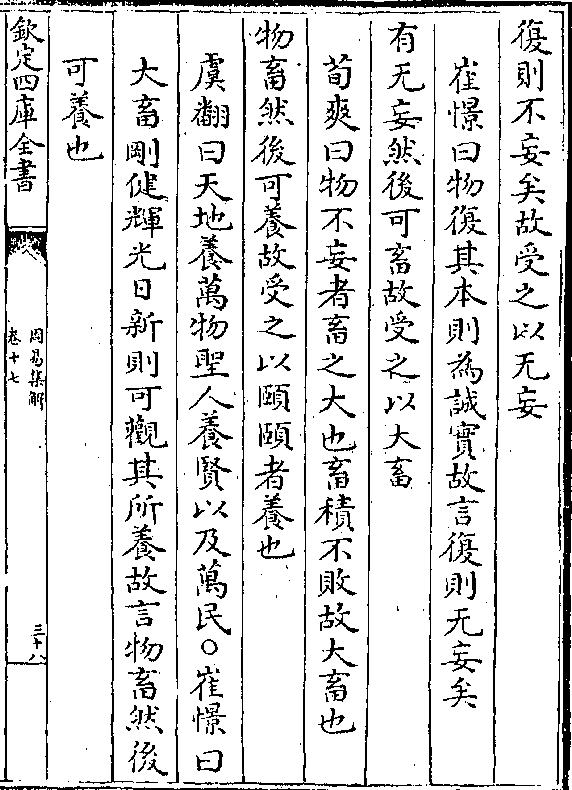 復則不妄矣故受之以无妄
崔憬曰物復其本則為誠實故言復則无妄矣
有无妄然後可畜故受之以大畜
荀爽曰物不妄者畜之大也畜積不敗故大畜也
物畜然後可養故受之以頤頤者養也
虞翻曰天地養萬物聖人養賢以及萬民○崔憬曰
大畜剛健輝光日新則可觀其所養故言物畜然後
可養也
欽定四庫全書
周易集解
卷十七
三十八